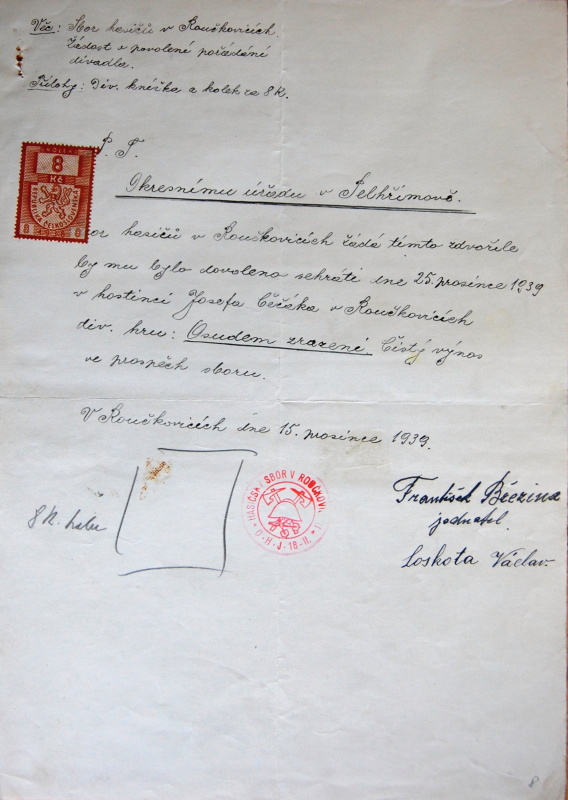 Věc: Sbor hasičů v Roučkovicích.
Žádost o povolené pořádání
divadla.
Přílohy: Div. knížka a kolek za 8 K.
P. T.
Okresnímu úřadu v Pelhřimově.
KOLEK
8
Kč
REPUBLIKA ČESKOSLOVENSKÁ
8 8
or hasičů v Roučkovicích žádá tímto zdvořile
by mu bylo dovoleno sehráti dne 25. prosince 1939
v hostinci Josefa Čěčáka v Roučkovicích
div. hru: Osudem zrazeni. Čistý výnos
ve prospěch sboru.
V Roučkovicích dne 15. prosince 1939.
HASIČSK SBOR V ROUČKOVI
O-H-J-18-II.
8 K.
František Březina
jednatel.
Loskota Václav.
8